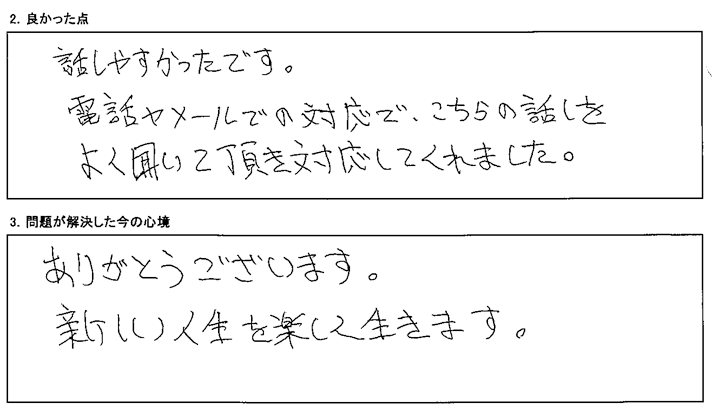 2. 良かった点
話しやすかったです。
電話やメールでの対応で、こちらの話しを
よく聞いて頂き対応してくれました。
3. 問題が解決した今の心境
ありがとうございます。
新しい人生を楽しく生きます。